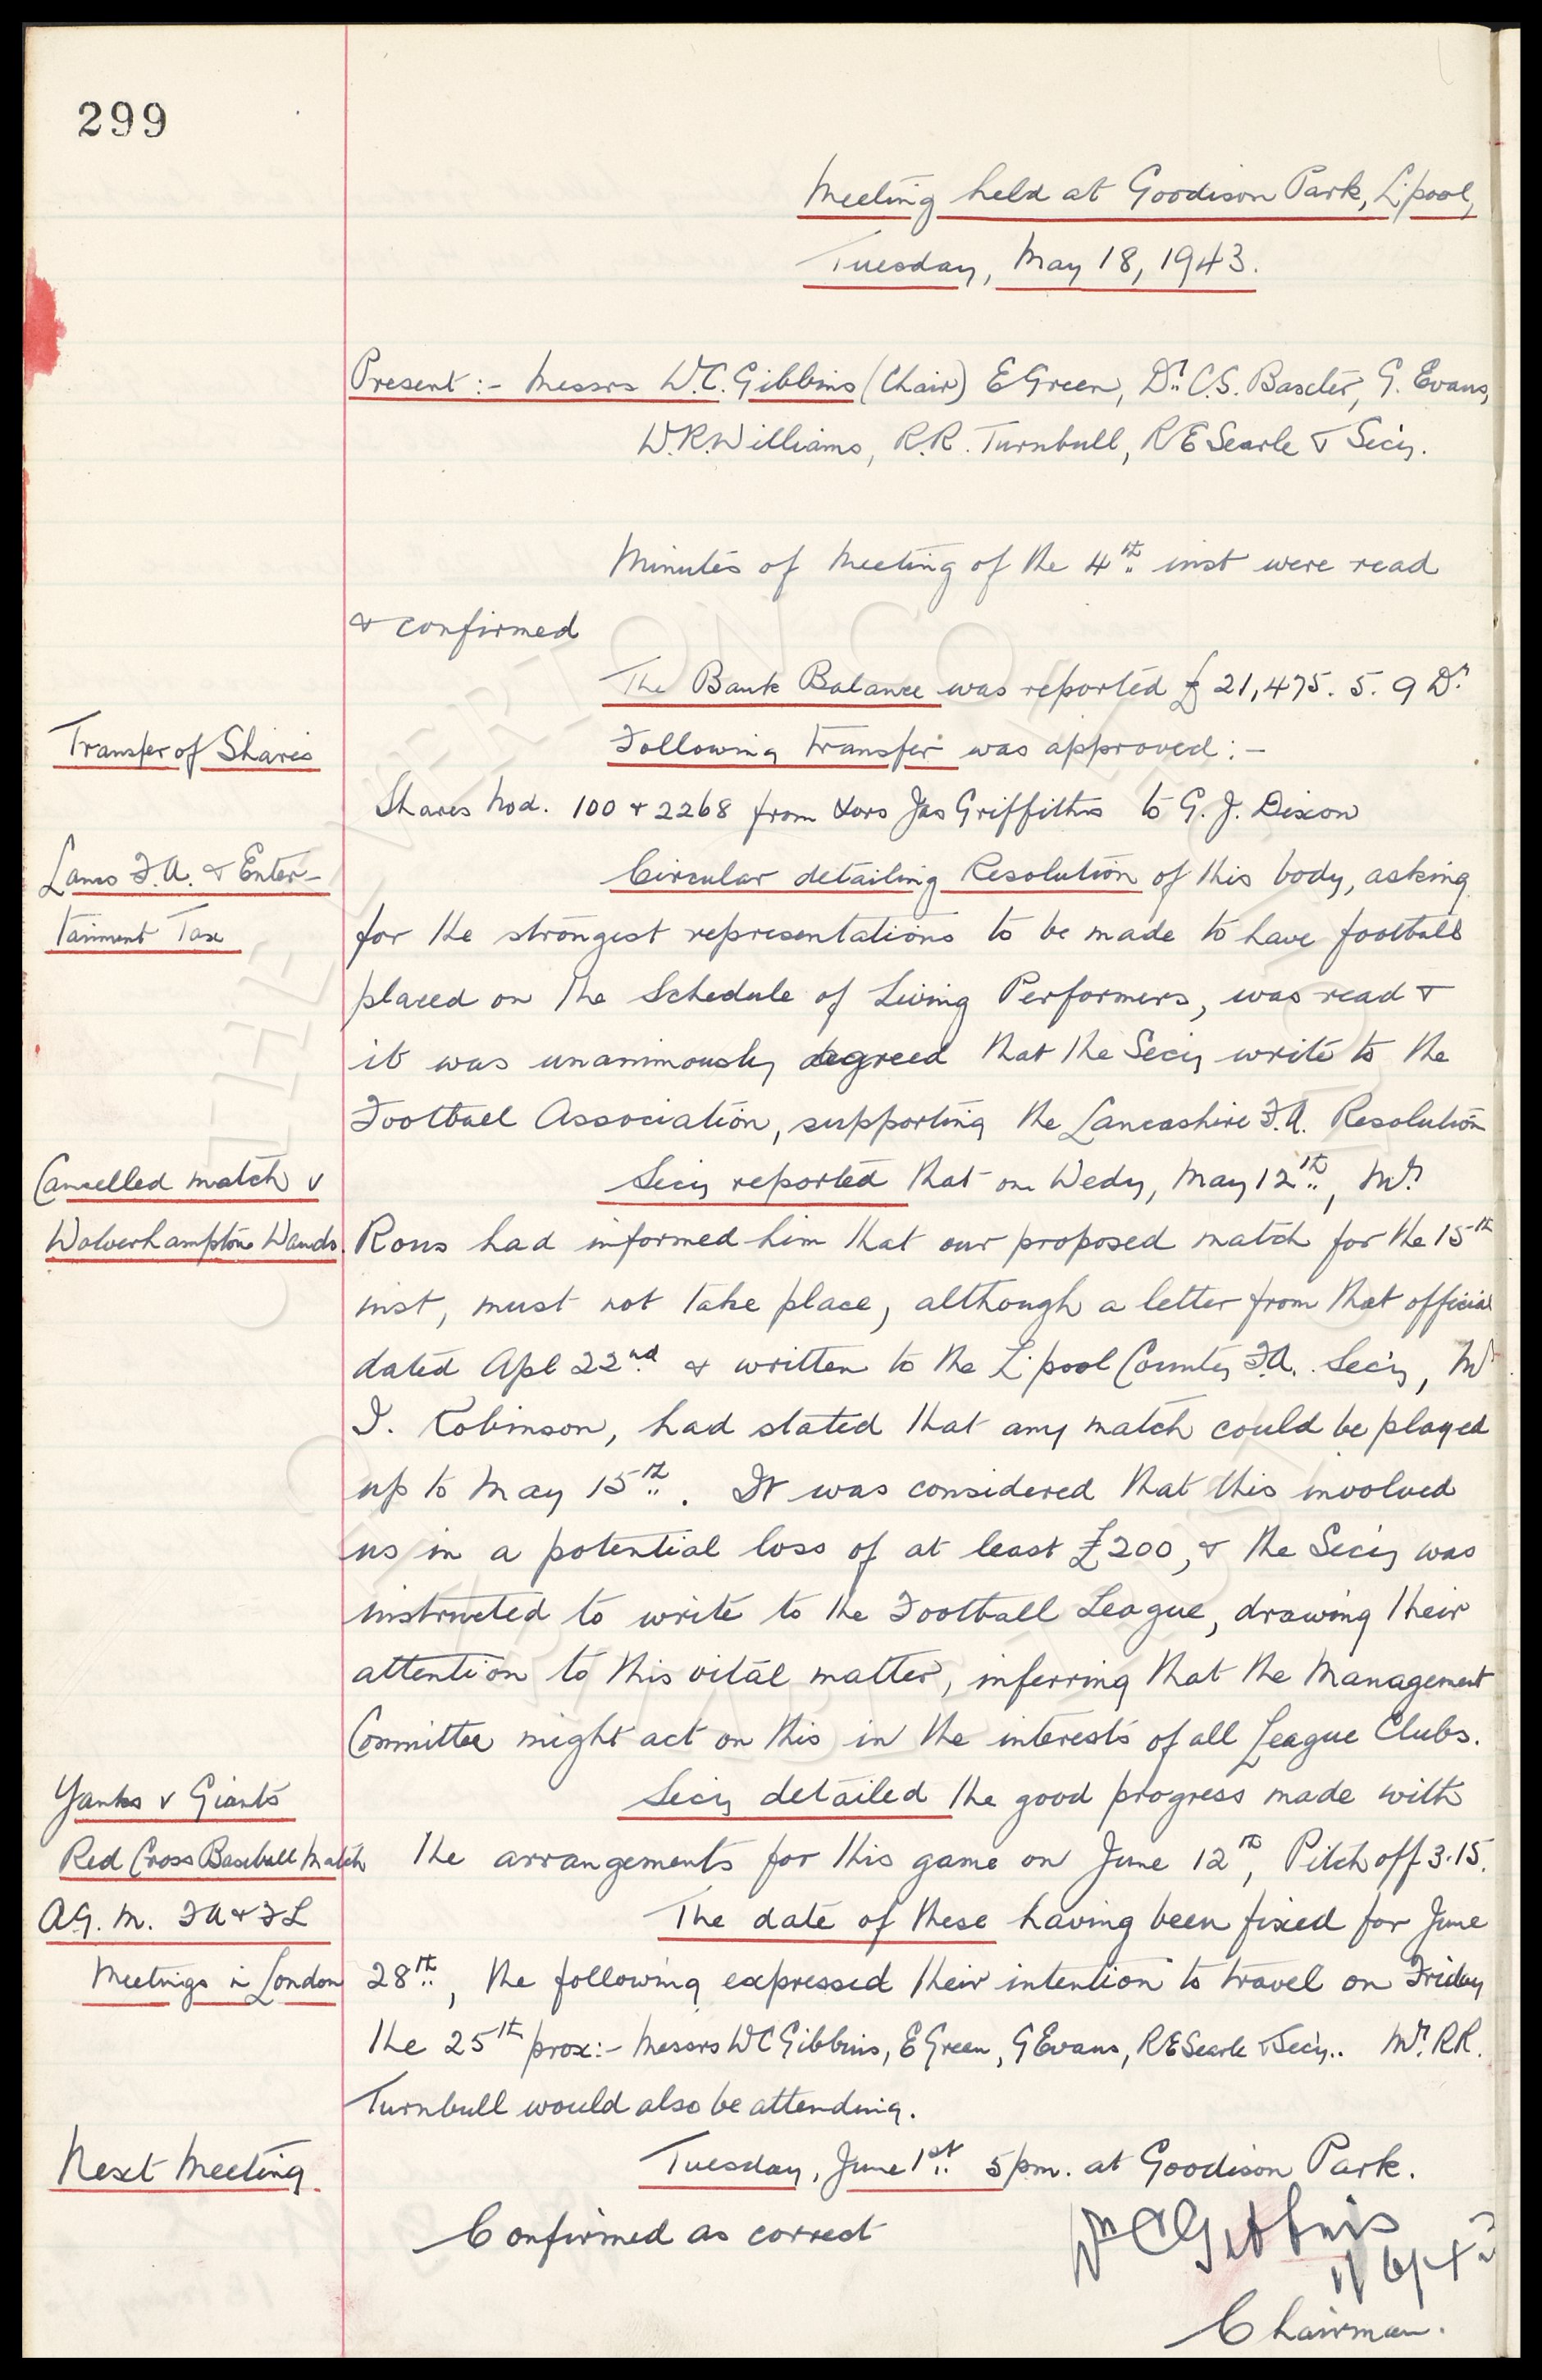 299
Meeting held at Goodison Park, L'pool,
Tuesday, May 18, 1943.
Present :- Messrs W.C. Gibbins (Chair) E Green, Dr. C.S. Baxter, G. Evans,
W.R. Williams, R.R. Turnbull, R E Searle & Secy.
Minutes of Meeting of the 4th inst were read
& confirmed
The Bank Balance was reported £21,475. 5. 9 Dr
Transfer of Shares
Following transfer was approved :-
Shares Nod. 100 & 2268 from Xors Jas Griffiths to G. J. Dixon
Lancs F.A. & Enter-
tainment Tax
Circular detailing Resolution of this body, asking
for the strongest representations to be made to have football
placed on the Schedule of Living Performers, was read &
it was unanimously agreed that the Secy write to the
Football Association, supporting the Lancashire F.A. Resolution
Cancelled match v
Wolverhampton Wands.
Secy reported that on Wedy, May 12th, Mr
Rous had informed him that our proposed match for the 15th
inst, must not take place, although a letter from that official
dated Apl 22nd & written to the L'pool County F.A. Secy, Mr
I. Robinson, had stated that any match could be played
up to May 15th. It was considered that this involved
us in a potential loss of at least £200, & the Secy was
instructed to write to the Football League, drawing their
attention to this vital matter, inferring that the Management
Committee might act on this in the interests of all League Clubs.
Yanks v Giants
Red Cross Baseball Match
Secy detailed the good progress made with
the arrangements for this game on June 12th, Pitch off 3.15.
A.G.M. FA & FL
Meetings in London
The date of these having been fixed for June
28th, the following expressed their intention to travel on Friday
the 25th prox:- Messrs W C Gibbins, E Green, G Evans, R E Searle & Secy.. Mr. R R.
Turnbull would also be attending.
Next Meeting.
Tuesday, June 1st. 5pm. at Goodison Park.
Confirmed as correct
Wm C Gibbins
1/6/43
Chairman.